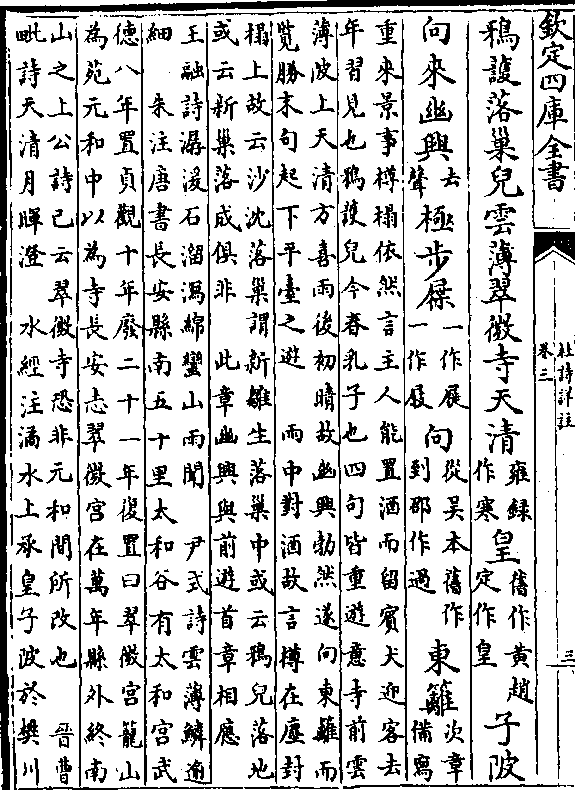 欽定四庫全書
杜詩詳註
卷三
三
鴉護落巢兒雲薄翠微寺天清雍録作寒皇舊作黄趙定作皇子陂
向來幽興去聲極步屧一作展一作屐向從吳本舊作到邵作過東籬次章備寫
重來景事樽榻依然言主人能置酒而留賓犬迎客去
年習見也鴉護兒今春乳子也四句皆重遊意寺前雲
薄波上天清方喜雨後初晴故幽興勃然遂向東籬而
覽勝末句起下平臺之遊　雨中對酒故言樽在塵封
榻上故云沙沈落巢謂新雛生落巢中或云鴉兒落地
或云新巢落成俱非　此章幽興與前遊首章相應
王融詩潺湲石溜瀉綿蠻山雨聞　尹式詩雲薄鱗逾
細　朱注唐書長安縣南五十里太和谷有太和宮武
德八年置貞觀十年廢二十一年復置曰翠微宮籠山
為苑元和中以為寺長安志翠微宮在萬年縣外終南
山之上公詩已云翠微寺恐非元和間所改也　晉曹
毗詩天清月暉澄　水經注潏水上承皇子陂於樊川